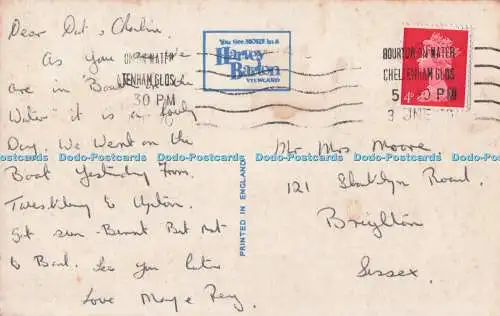 Dear Dot & Charlie.
As you see we
are in Bourton on the
Water it is a lovely
Day. We Went on the
Boat Yesterday From
Tweskbury to Upton.
got sun-Burnt But not
to Bad. See you later
Love May & Reg.
You See MORE in a
Harvey
Barton
VIEWCARD
ON THE WATER
TENHAM GLOS
30 PM
BOURTON WATER
CHELTENHAM GLOS
5 30 PM
3 JUNE
4D
PRINTED IN ENGLAND
Mr Mrs Moore
121 Road.
Brighton
Sussex.
Dodo-Postcards Dodo-Postcards Dodo-Postcards Dodo-Postcards Dodo-Postcards